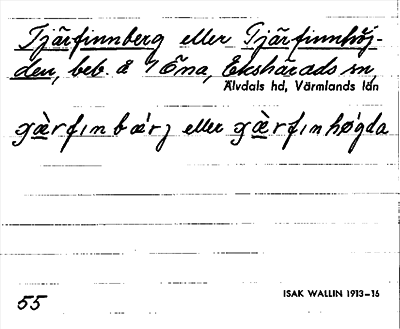 Tjärfinnberg eller Tjärfinnhöj-
den, beb. å 1 Ena, Ekshärads sn,
Älvdals hd, Värmlands län
gæ̀rfınbǽrj eller gæ̀rfınhǿgda
55
ISAK WALLIN 1913–16